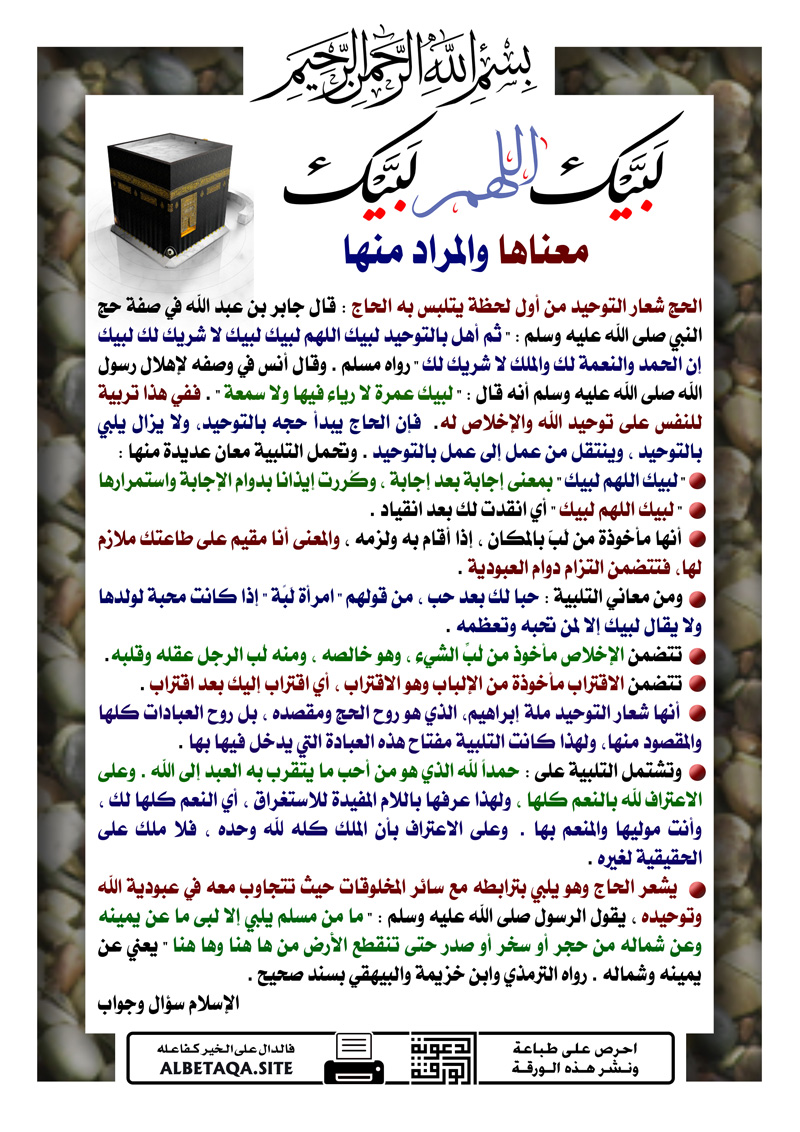 بِسْمِ اللَّهِ الرَّحْمَنِ الرَّحِيمِ
لَبَّيْكَ اللهم لَبَّيْكَ
معناها والمراد منها
الحج شعار التوحيد من أول لحظة يتلبس به الحاج : قال جابر بن عبد الله في صفة حج
النبي صلى الله عليه وسلم : " ثم أهل بالتوحيد لبيك اللهم لبيك لبيك لا شريك لك لبيك
إن الحمد والنعمة لك والملك لا شريك لك " رواه مسلم . وقال أنس في وصفه لإهلال رسول
الله صلى الله عليه وسلم أنه قال : " لبيك عمرة لا رياء فيها ولا سمعة " . ففي هذا تربية
للنفس على توحيد الله والإخلاص له. فإن الحاج يبدأ حجه بالتوحيد، ولا يزال يلبي
بالتوحيد ، وينتقل من عمل إلى عمل بالتوحيد . وتحمل التلبية معان عديدة منها :
" لبيك اللهم لبيك " بمعنى إجابة بعد إجابة ، وكُررت إيذانا بدوام الإجابة واستمرارها
" لبيك اللهم لبيك " أي انقدت لك بعد انقياد .
أنها مأخوذة من لبَ بالمكان ، إذا أقام به ولزمه ، والمعنى أنا مقيم على طاعتك ملازم
لها، فتتضمن التزام دوام العبودية .
ومن معاني التلبية : حبا لك بعد حب ، من قولهم " امرأة لبّة " إذا كانت محبة لولدها
ولا يقال لبيك إلا لمن تحبه وتعظمه .
تتضمن الإخلاص مأخوذ من لبِّ الشيء ، وهو خالصه ، ومنه لب الرجل عقله وقلبه.
تتضمن الاقتراب مأخوذة من الإلباب وهو الاقتراب ، أي اقتراب إليك بعد اقتراب .
أنها شعار التوحيد ملة إبراهيم، الذي هو روح الحج ومقصده ، بل روح العبادات كلها
والمقصود منها، ولهذا كانت التلبية مفتاح هذه العبادة التي يدخل فيها بها .
وتشتمل التلبية على : حمداً لله الذي هو من أحب ما يتقرب به العبد إلى الله . وعلى
الاعتراف لله بالنعم كلها ، ولهذا عرفها باللام المفيدة للاستغراق ، أي النعم كلها لك ،
وأنت موليها والمنعم بها . وعلى الاعتراف بأن الملك كله لله وحده ، فلا ملك على
الحقيقية لغيره .
يشعر الحاج وهو يلبي بترابطه مع سائر المخلوقات حيث تتجاوب معه في عبودية الله
وتوحيده ، يقول الرسول صلى الله عليه وسلم : " ما من مسلم يلبي إلا لبى ما عن يمينه
وعن شماله من حجر أو سخُر أو صدر حتى تنقطع الأرض من ها هنا وها هنا " يعني عن
يمينه وشماله . رواه الترمذي وابن خزيمة والبيهقي بسند صحيح .
الإسلام سؤال وجواب
احرص على طباعة
ونشر هذه الورقة
الورقة
الدعوية
فالدال على الخير كفاعله
ALBETAQA.SITE